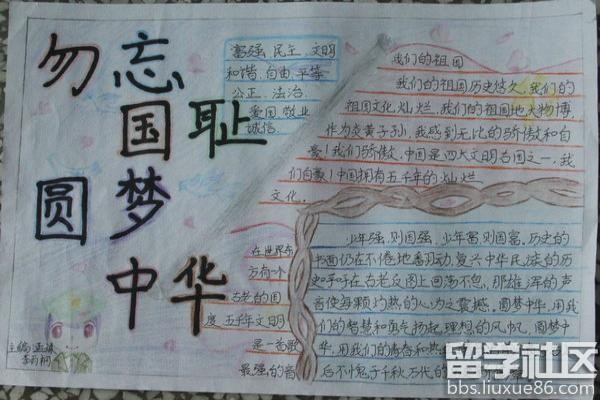 勿忘
国耻
圆梦
中华
富强、民主、文明
和谐、自由、平等
公正、法治、
爱国、敬业
诚信、
我们的祖国
我们的祖国历史悠久,我们的
祖国文化灿烂,我们的祖国地大物博。
作为炎黄子孙,我感到无比的骄傲和自
豪!我们骄傲,中国是四大文明古国之一,我
们自豪!中国拥有五千年的灿烂
文化。
在世界东
方有一个
古老的国
度 五千年文明
是一首歌
最强的音
少年强,则国强,少年富,则国富,历史的
书面仍在不倦地翻动,复兴中华民族的历
史呼吁在古老版图上回荡不息,那雄浑的声
音使每颗灼热的心为之震撼,圆梦中华,用我
们的智慧和勇气扬起理想的风帆,圆梦中
华,用我们的青春和热
后不愧于千秋万代的
主编
留学社区
bbs.liuxue86.com